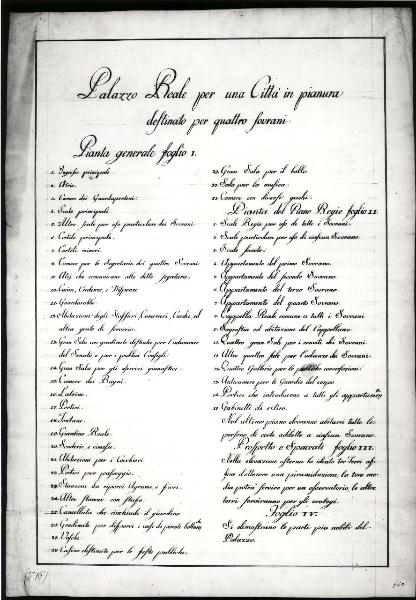 Palazzo Reale per una Città in pianura
destinato per quattro Sovrani
Pianta generale foglio I.
1. Ingressi principali
2. Atrio.
3. Camere dei Guardaportoni
4. Scale principali
5. Altre scale per uso particolare dei Sovrani
6. Cortile principale.
7. Cortili minori.
8. Camere per le Segretarie dei quattro Sovrani
9. che comunicano alle dette segretarie.
10. Cucine, Credenze, e Dispense
11. Guardarobbe
12. Abitazioni degli Staffieri, Camerieri, Cuochi, ed
altra gente di servizio.
13. Gran Sala con gradinate destinata per l'adunanze
del Senato, e per i publici Consigli
14. Gran Sala per gli esercizi ginnastici.
15. Camere dei Bagni.
16. Latrine.
17. Portici.
18. Fontane.
19. Giardino Reale
20. Scuderie, e rimesse.
21. Abitazioni per i Cocchieri
22. Portici per passeggio.
23. Stanzoni da riporvi Agrumi, e fiori.
24. Altre stanze con stufa.
25. Cancellata che rinchiude il giardino
26. Gradinate per disporvi i vasi di piccole
27. Vasche
28. Casino destinato per le feste pubbliche.
29. Gran Sala per il ballo
30. Sala per la musica.
31. Camere con diversi giochi.
Pianta del Piano Regio foglio II.
1. Scale Regie per uso di tutti i Sovrani.
2. Scale particolari per uso di ciascun Sovrano.
3. Scale
4. Appartamento del primo Sovrano.
5. Appartamento del secondo Sovrano
6. Appartamento del terzo Sovrano
7. Appartamento del quarto Sovrano.
8. Cappella Reale comune a tutti i Sovrani
9. Sagrestia ed abitazione del Cappellano.
10. Quattro gran Sale per i conviti dei Sovrani
11. Altre quattro sale per l'udienze dei Sovrani.
12. Quattro Gallerie per le publiche conversazioni
13. Anticamere per le Guardie del corpo
14. Portici che introducono a tutti gli appartamenti
15. Gabinetti di ritiro.
Nel ultimo piano dovranno abitarvi tutte le
persone di corte addette a ciascun Sovrano.
Prospetti e Spaccati foglio III.
Nelle elevazioni esterne ho ideato tre torri
affine d'ottenere una piramidazione, la torre me-
dia potrà servire per un osservatorio, le altre
torri serviranno per gli orologi.
Foglio IV.
Si dimostrano le parti più nobili del
Palazzo.